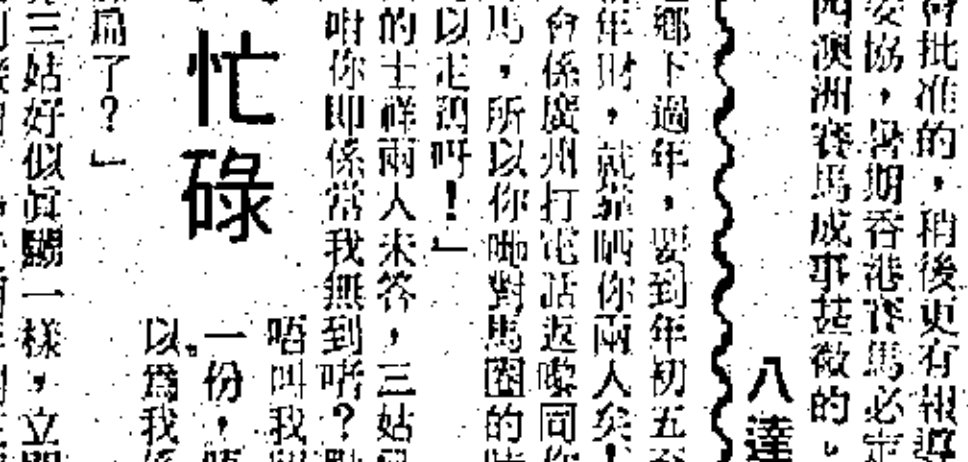 會批准的，稍後更有報導
妥協，暑期香港賽馬必定
西澳洲賽馬成事甚微的。
八達
鄉下過年，要到年初五至
年財，就靠晒你兩人矣！
會係廣州打電話返嚟同你
馬，所以你哋對馬圈的
以走鷄呀！」
的士祥兩人來答，三姑
咁你即係當我無到啫？
唔叫我
忙碌
一份，唔
以爲我係
扁了？」
三姑好似眞嬲一樣，立